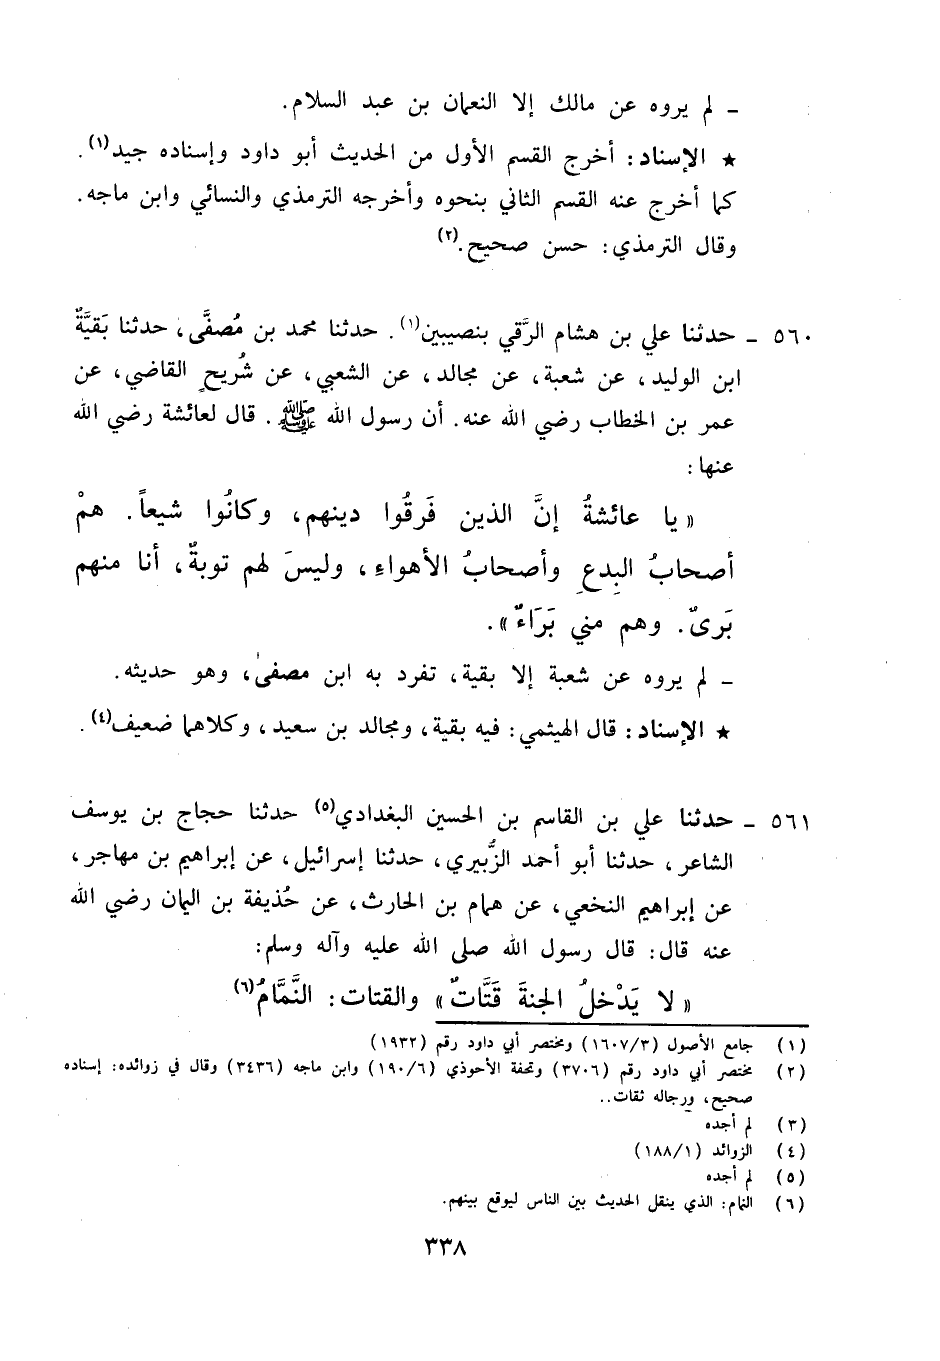 ـ لم يروه عن مالك إلا النعمان بن عبد السلام.
★ الإسناد: أخرج القسم الأول من الحديث أبو داود وإسناده جيد(١).
كما أخرج عنه القسم الثاني بنحوه وأخرجه الترمذي والنسائي وابن ماجه.
وقال الترمذي: حسن صحيح.(٢)
٥٦٠ ـ حدثنا علي بن هشام الرَّقي بنصيبين(١). حدثنا محمد بن مُصفَّى، حدثنا بَقيَّةٌ
ابن الوليد، عن شعبة، عن مجالد، عن الشعبي، عن شُريحٍ القاضي، عن
عمر بن الخطاب رضي الله عنه. أن رسول الله ﷺ. قال لعائشة رضي الله
عنها:
« يا عائشةُ إنَّ الذين فَرقُوا دينهم، وكانُوا شيعاً. همْ
أصحابُ البِدعِ وأصحابُ الأهواءِ، وليسَ لهم توبةٌ، أنا منهم
بَرىٌ. وهم مني بَرَاءٌ».
ـ لم يروه عن شعبة إلا بقية، تفرد به ابن مصفى، وهو حديثه.
★ الإسناد: قال الهيثمي: فيه بقية، ومجالد بن سعيد، وكلاهما ضعيف(٤).
٥٦١ ـ حدثنا علي بن القاسم بن الحسين البغدادي(٥) حدثنا حجاج بن يوسف
الشاعر، حدثنا أبو أحمد الزُّبيري، حدثنا إسرائيل، عن إبراهيم بن مهاجر،
عن إبراهيم النخعي، عن همام بن الحارث، عن حُذيفة بن اليمان رضي الله
عنه قال: قال رسول الله صلى الله عليه وآله وسلم:
« لا يَدْخلُ الجنةَ قَتَّاتٌ» والقتات: النَّمَّامُ(٦)
(١) جامع الأصول (١٦٠٧/٣) ومختصر أبي داود رقم (١٩٣٢)
(٢) مختصر أبي داود رقم (٣٧٠٦) وتحفة الأحوذي (١٩٠/٦) وابن ماجه (٣٤٣٦) وقال في زوائده: إسناده
صحيح، ورجاله ثقات..
(٣) لم أجده
(٤) الزوائد (١٨٨/١)
(٥) لم أجده
(٦) النمام: الذي ينقل الحديث بين الناس ليوقع بينهم.
٣٣٨